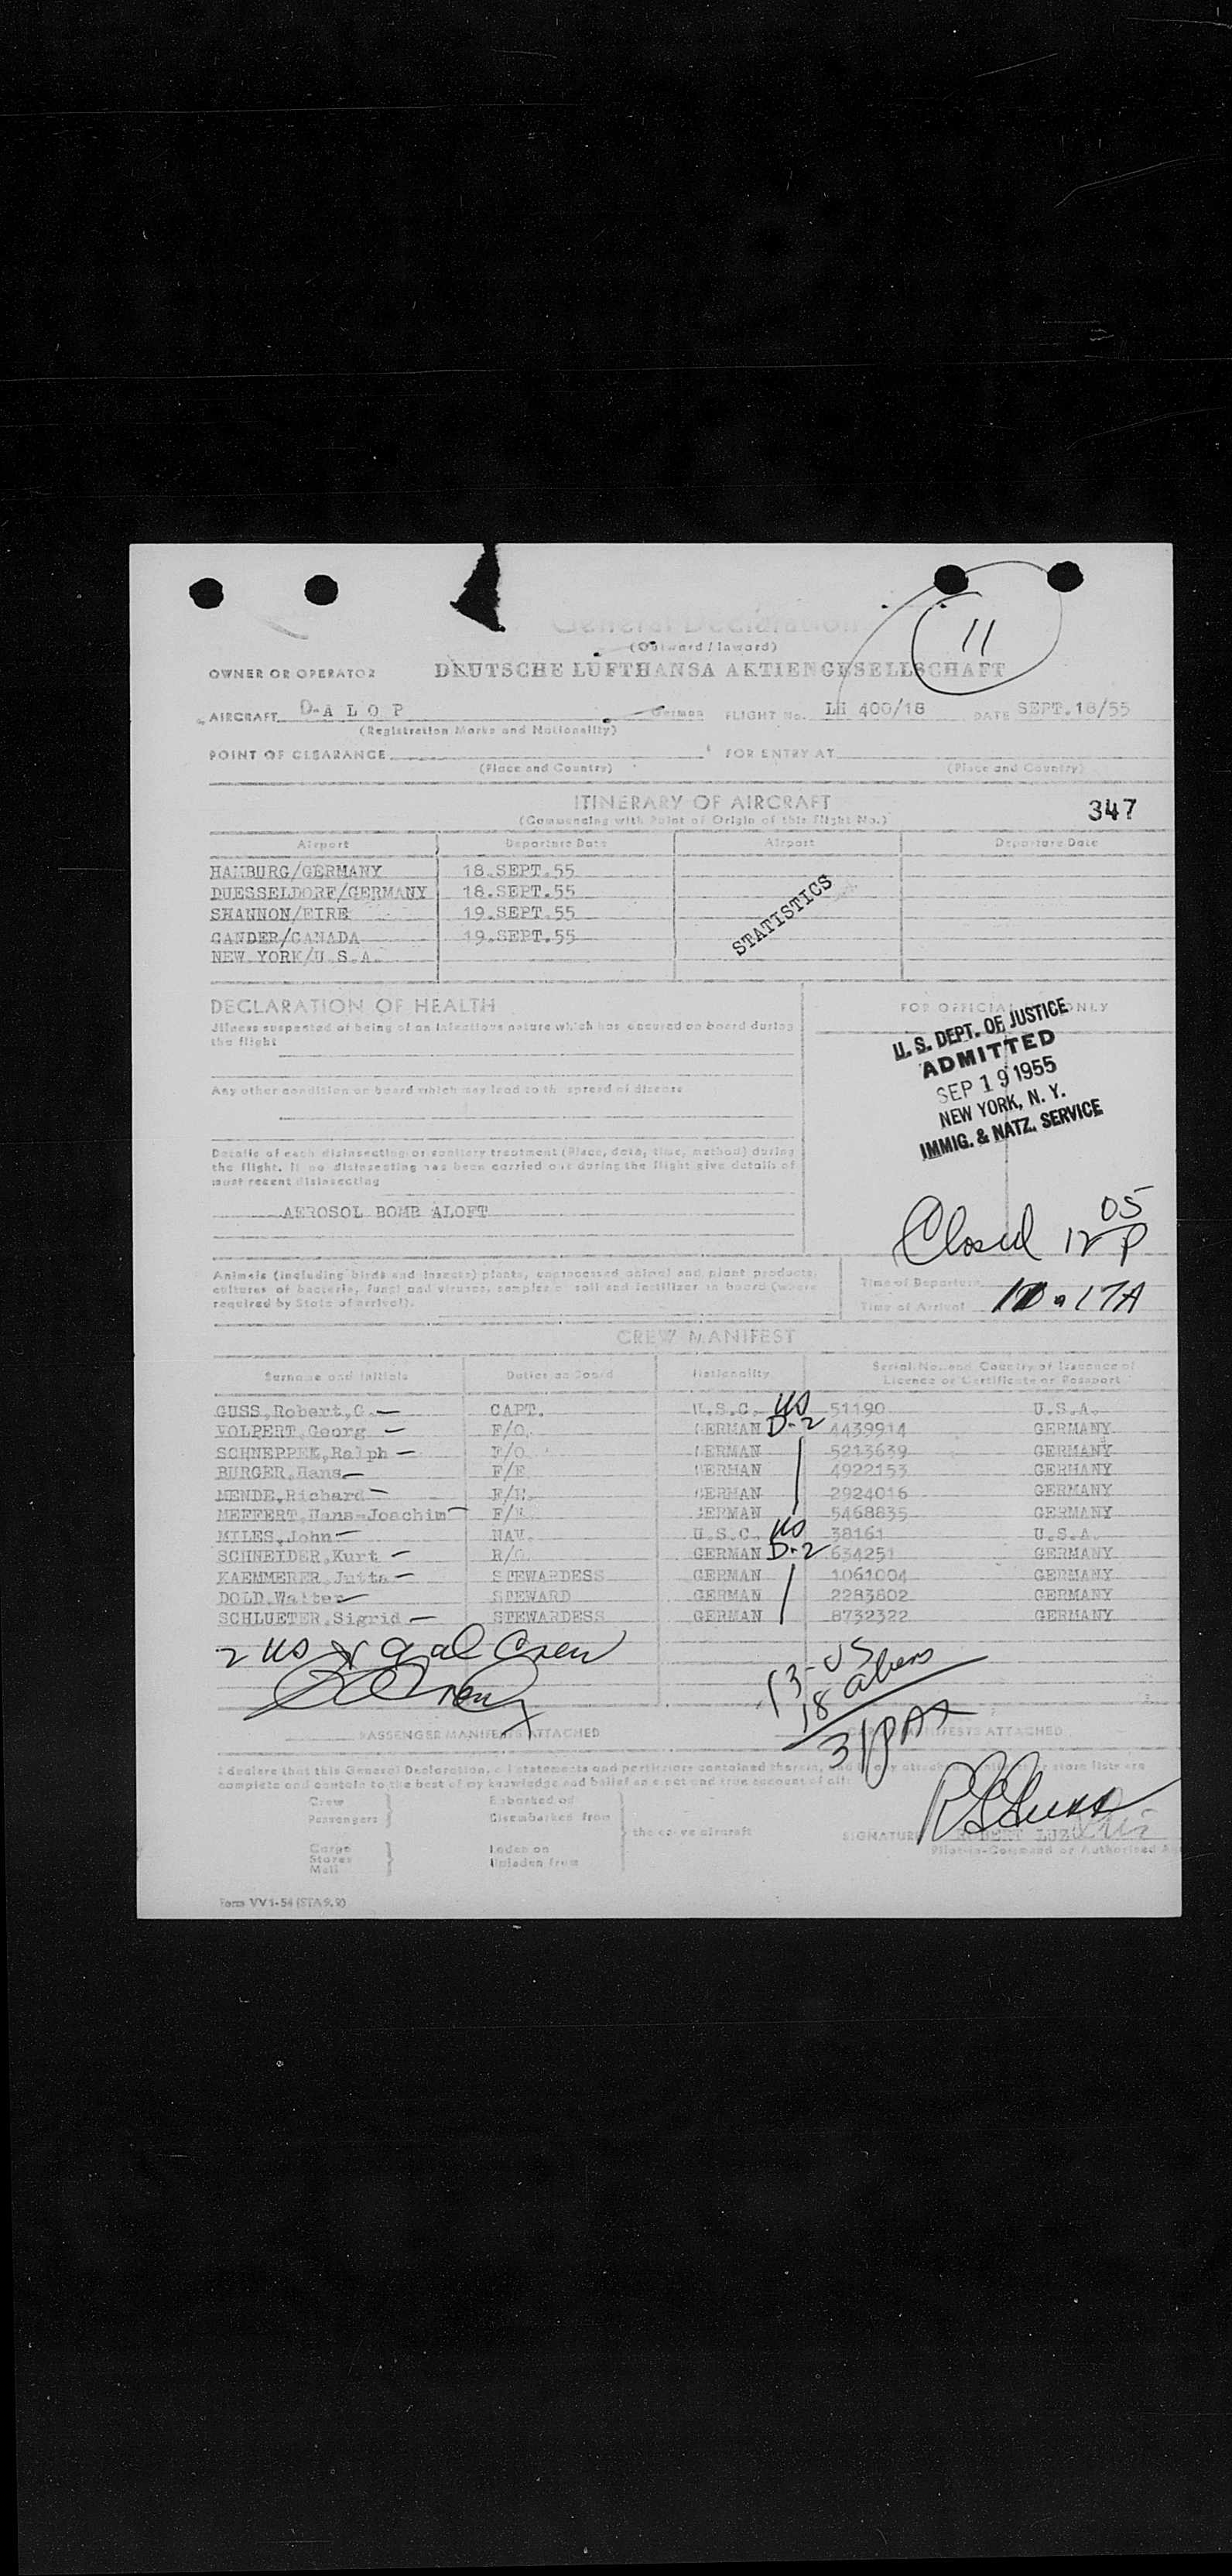 General Declaration
(Outward / Inward)
11
OWNER OR OPERATOR DEUTSCHE LUFTHANSA AKTIENGESELLSCHAFT
AIRCRAFT D-A L O P German FLIGHT No. LH 400/18 DATE SEPT.18/55
(Registration Marks and Nationality)
POINT OF CLEARANCE FOR ENTRY AT
(Place and Country) (Place and Country)
ITINERARY OF AIRCRAFT
(Commencing with Point of Origin of this flight No.)
347
Airport Departure Date Airport Departure Date
HAMBURG/GERMANY 18.SEPT.55
DUESSELDORF/GERMANY 18.SEPT.55
SHANNON/EIRE 19.SEPT.55
GANDER/CANADA 19.SEPT.55
NEW YORK/U.S.A.
STATISTICS
DECLARATION OF HEALTH
Illness suspected of being of an infectious nature which has occured on board during
the flight
Any other condition on board which may lead to the spread of disease
Details of each disinsecting or sanitary treatment (Place, date, time, method) during
the flight. If no disinsecting has been carried out during the flight give details of
most recent disinsecting
AEROSOL BOMB ALOFT
FOR OFFICIAL ONLY
U. S. DEPT. OF JUSTICE
ADMITTED
SEP 19 1955
NEW YORK, N. Y.
IMMIG. & NATZ. SERVICE
Closed 12 05 P
Animals (including birds and insects) plants, unprocessed animal and plant products,
cultures of bacteria, fungi and viruses, samples of soil and fertilizer in board (where
required by State of arrival).
Time of Departure
Time of Arrival 17A
CREW MANIFEST
Surname and Initials Duties on Board Nationality Serial No. and Country of Issuance of
Licence or Certificate or Passport
GUSS,Robert,C. CAPT. U.S.C. US 51190 U.S.A.
VOLPERT,Georg F/O. GERMAN D-2 4439914 GERMANY
SCHNEPPEN,Ralph F/O. GERMAN 5213639 GERMANY
BURGER,Hans F/E. GERMAN 4922153 GERMANY
MENDE,Richard F/E. GERMAN 2924016 GERMANY
MEFFERT,Hans-Joachim F/E. GERMAN 5468835 GERMANY
MILES,John NAV. U.S.C. US 38161 U.S.A.
SCHNEIDER,Kurt R/O. GERMAN D-2 634251 GERMANY
KAEMMERER,Jutta STEWARDESS GERMAN 1061004 GERMANY
DOLD,Walter STEWARD GERMAN 2283802 GERMANY
SCHLUETER,Sigrid STEWARDESS GERMAN 8732322 GERMANY
2 US & 9 al Crew
13-US
18 aliens
31 PAX
PASSENGER MANIFESTS ATTACHED MANIFESTS ATTACHED
I declare that this General Declaration, statements and particulars contained therein, store lists are
complete and contain to the best of my knowledge and belief an exact and true account of all:
Crew Embarked on
Passengers Disembarked from
the above aircraft
Cargo Laden on
Stores Unladen from
Mail
SIGNATURE ROBERT
Pilot-in-Command or Authorised
Form VV 1-54 (STA 9.2)